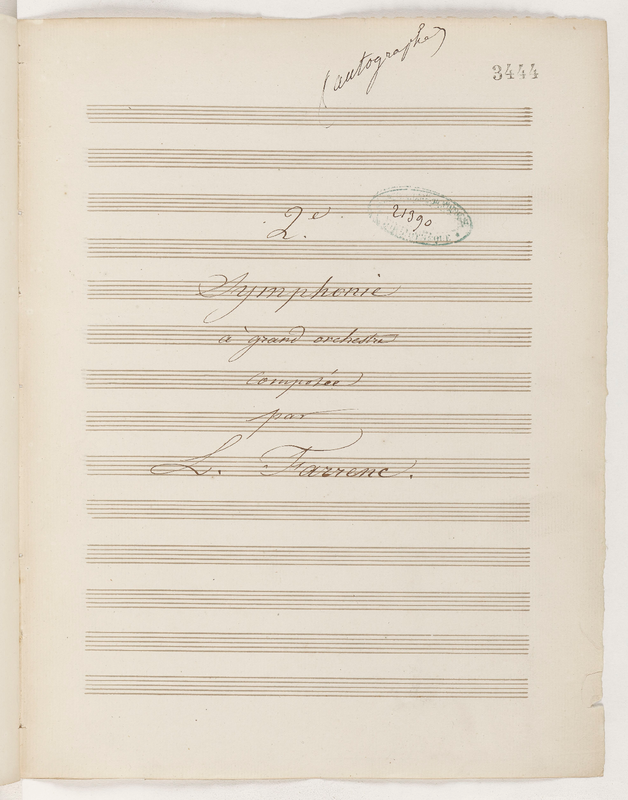 (autographe)
3444
2e.
21390
Symphonie
à grand orchestre
composée
par
L. Farrenc.